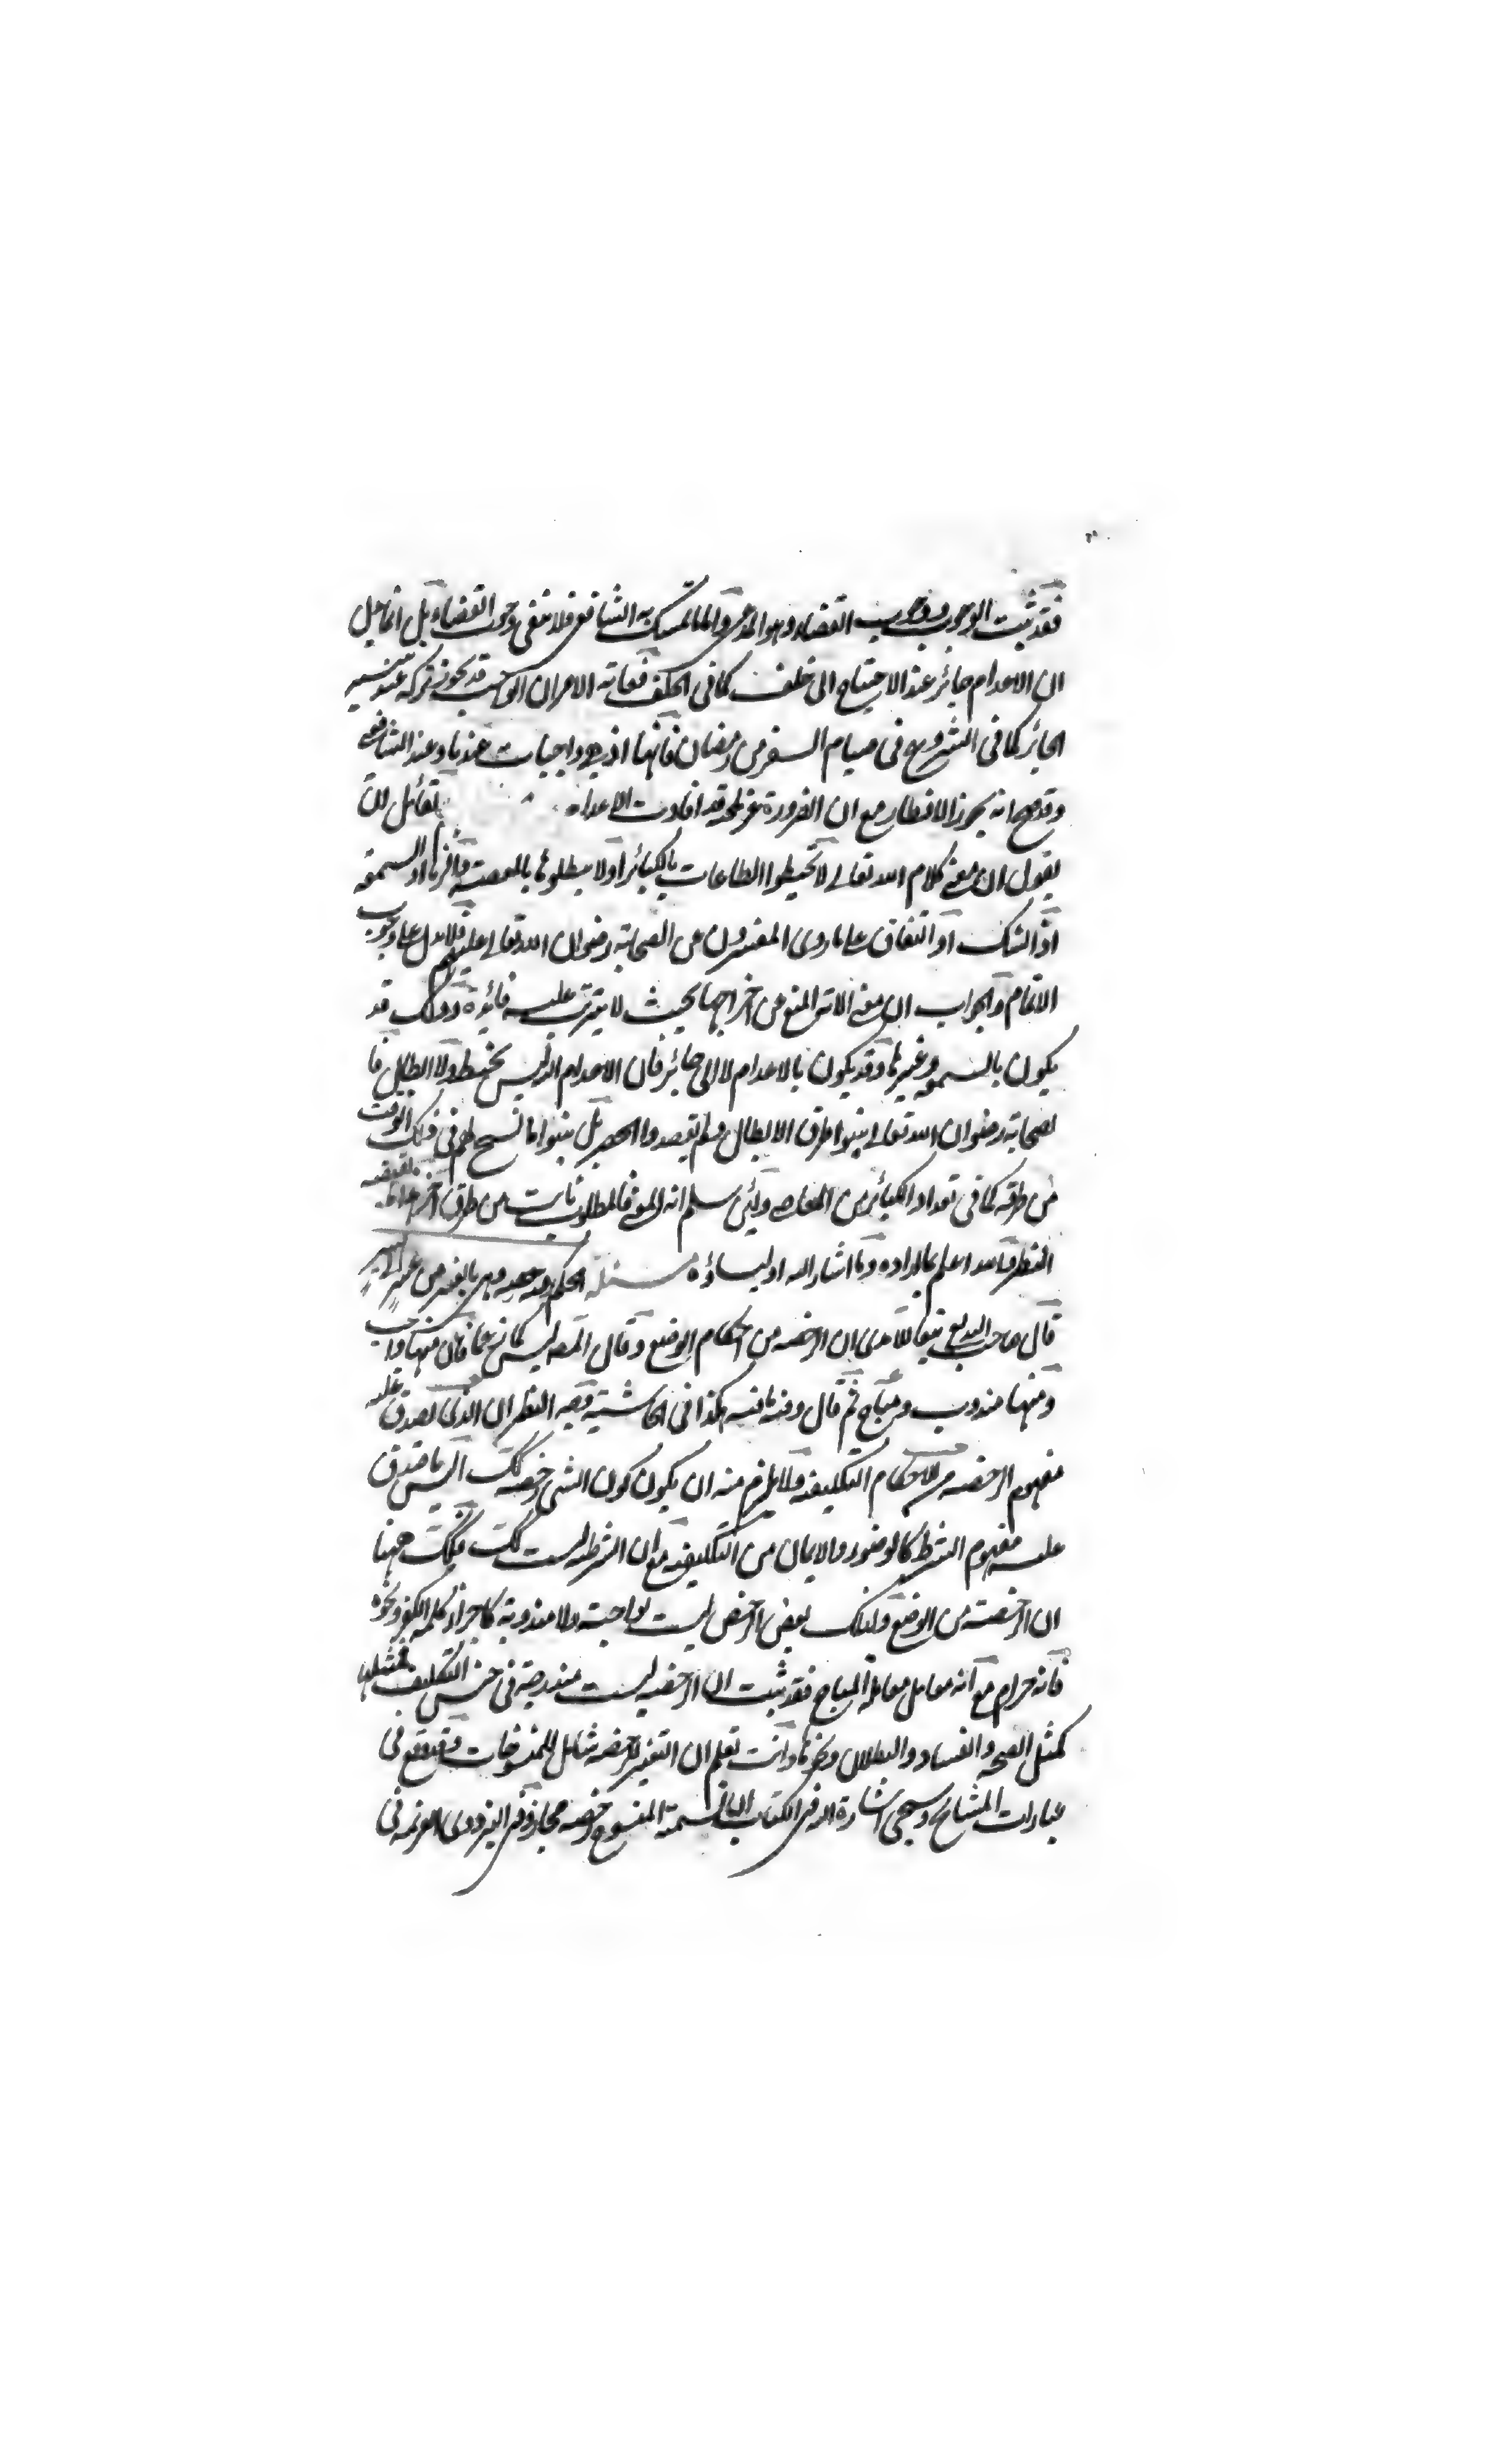 فقد ثبت الوجوب ووجوب القضاء وهو المدعى واما ما تمسك به الشافعى فلا ينفى وجوب القضاء بل انما يدل
ان الاعدام جائز عند الاحتياج الى خلف كما فى الحلف فغاية الامر ان الواجب قد يجوز تركه عند
الجائز كما فى الشروع فى صيام السفر من رمضان فانها اذن واجبات عندنا وعند الشافعى
وقد صح انه يجوز الافطار مع ان الضرورة قد افادت الاعداء لقائل ان
يقول ان معنى كلام الله تعالى لا تحبطوا الطاعات بالكبائر او لا تبطلوها بالمعصية والسمعة
او الشك او النفاق على ما روى المفسرون عن الصحابة رضوان الله تعالى عليهم فلا يدل على وجوب
الاتمام والجواب ان معنى الآية المنع عن اخراجها بحيث لا يترتب عليه فائدة وذلك قد
يكون بالسمعة وغيرها وقد يكون بالاعدام لا الى جائز فان الاعدام اليه ليس بحبط ولا ابطال فا
لصحابة رضوان الله تعالى بينوا طرق الابطال ولم يقصدوا الحصر بل بينوا ما نسح لهم فى ذلك الوقت
من طرقه كما فى تعداد الكبائر من المعاصى ولئن سلم انه المعنى فالمطلوب ثابت من طرق اخر
النظر والله اعلم بمراده وما اشار اليه اولياؤه مسئلة الحكم رخصة وهى ما تغير من عسر الى يسر
قال صاحب البديع تبعا للآمدى ان الرخصة من احكام الوضع وقال المصنف ليس كما زعما فان منها واجب
ومنها مندوب ومباح ثم قال وفيه ما فيه هكذا فى الحاشية وجه النظر ان الذى يصدق عليه
مفهوم الرخصة من الاحكام التكليفية ولا يلزم منه ان يكون كون الشئ رخصة كك اليس ما صدق
عليه مفهوم الشرط كالوضوء والايمان من التكليفية مع ان الشرطية ليست كك فكك ههنا
ان الرخصة من الوضع ولذلك بعض الرخص ليست بواجبة ولا مندوبة كاجراء كلمة الكفر ونحوه
فانه حرام مع انه معامل معاملة المباح فقد ثبت ان الرخصة ليست مندرجة فى جنس التكليف فمثلها
كمثل الصحة والفساد والبطلان ونحوها وانت تعلم ان التفسير للرخصة شامل للمنسوخات وقد وقع فى
عبارات المشايخ وسيجئ اشارة اليه فى الكتاب ان تسمية المنسوخ رخصة مجاز وفى البزدوى العزيمة فى